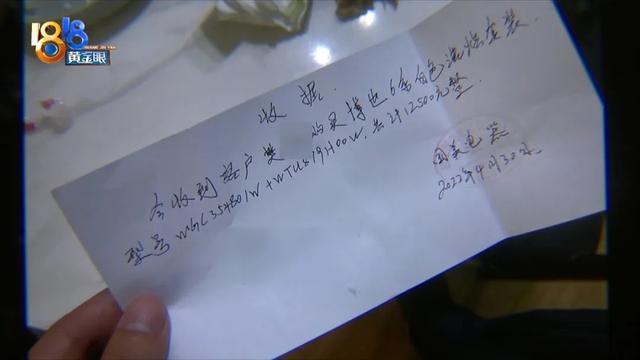 1818
黄金眼
收据.
今收到客户樊 购买博世6系白色洗烘套装.
型号 WGC354B01W+WTU879H00W,共计12500元整.
国美电器
2022年4月30日